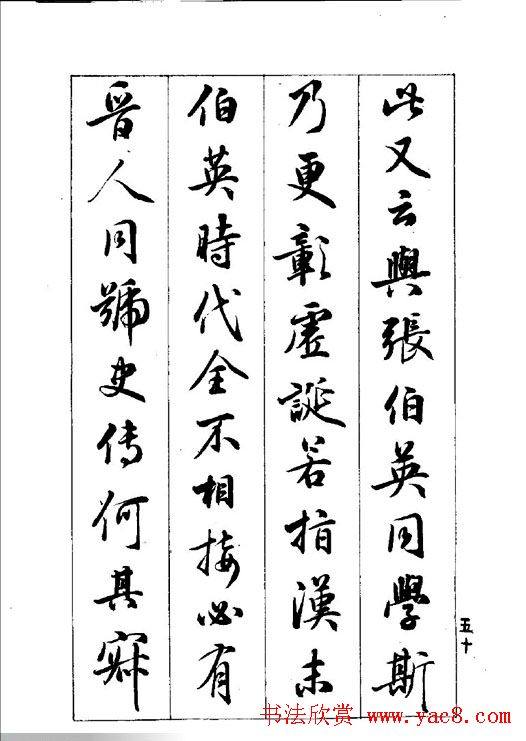 此又云與張伯英同學斯
乃更彰虛誕若指漢末
伯英時代全不相接必有
晉人同號史传何其寂
五十
书法欣赏 www.yac8.com